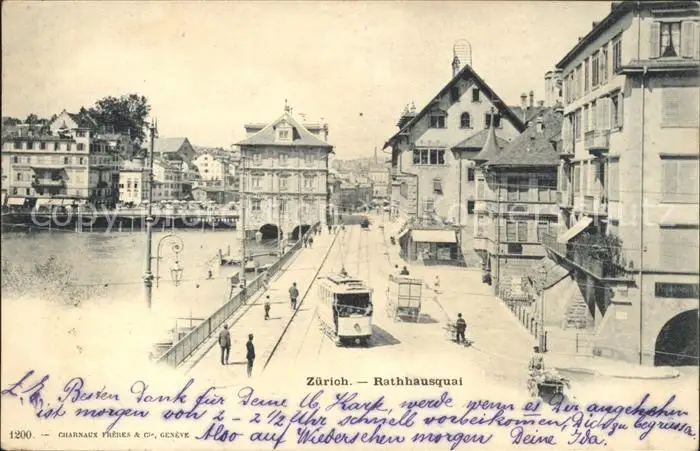 Zürich. — Rathhausquai
L. E. Besten Dank für Deine l. Karte, werde wenn es Dir angenehm
ist morgen von 2 - 2½ Uhr schnell vorbeikommen, Dich zu begrüssen
1200. — CHARNAUX FRÈRES & Cie, GENÈVE
Also auf Wiedersehen morgen Deine Ida.